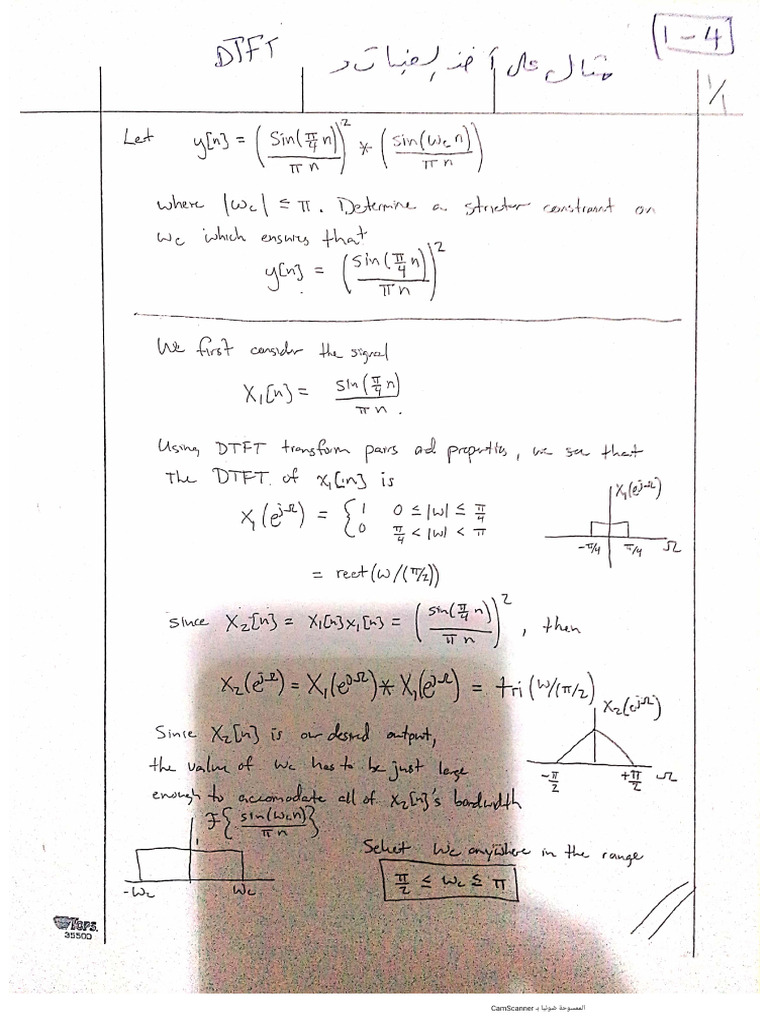 1-4
DTFT مثال على أخذ
1/1
Let y[n] = (sin(π/4 n)/πn)² * (sin(ωc n)/πn)
where |ωc| ≤ π. Determine a stricter constraint on
ωc which ensures that
y[n] = (sin(π/4 n)/πn)²
We first consider the signal
X₁[n] = sin(π/4 n)/πn.
Using DTFT transform pairs ad properties, we see that
the DTFT of x₁[n] is
X₁(e^jΩ)
X₁(e^jΩ) = { 1 0 ≤ |ω| ≤ π/4
0 π/4 < |ω| < π
-π/4 π/4 Ω
= rect(ω/(π/2))
since X₂[n] = X₁[n]x₁[n] = (sin(π/4 n)/πn)², then
X₂(e^jΩ) = X₁(e^jΩ) * X₁(e^jΩ) = tri(ω/(π/2)
X₂(e^jΩ)
-π/2 +π/2 Ω
Since X₂[n] is our desired output,
the value of ωc has to be just large
enough to accomodate all of X₂[n]'s bandwidth
F{sin(ωcn)/πn}
1
-ωc ωc
Select ωc anywhere in the range
π/2 ≤ ωc ≤ π
TOPS.
35500
الممسوحة ضوئيا بـ CamScanner